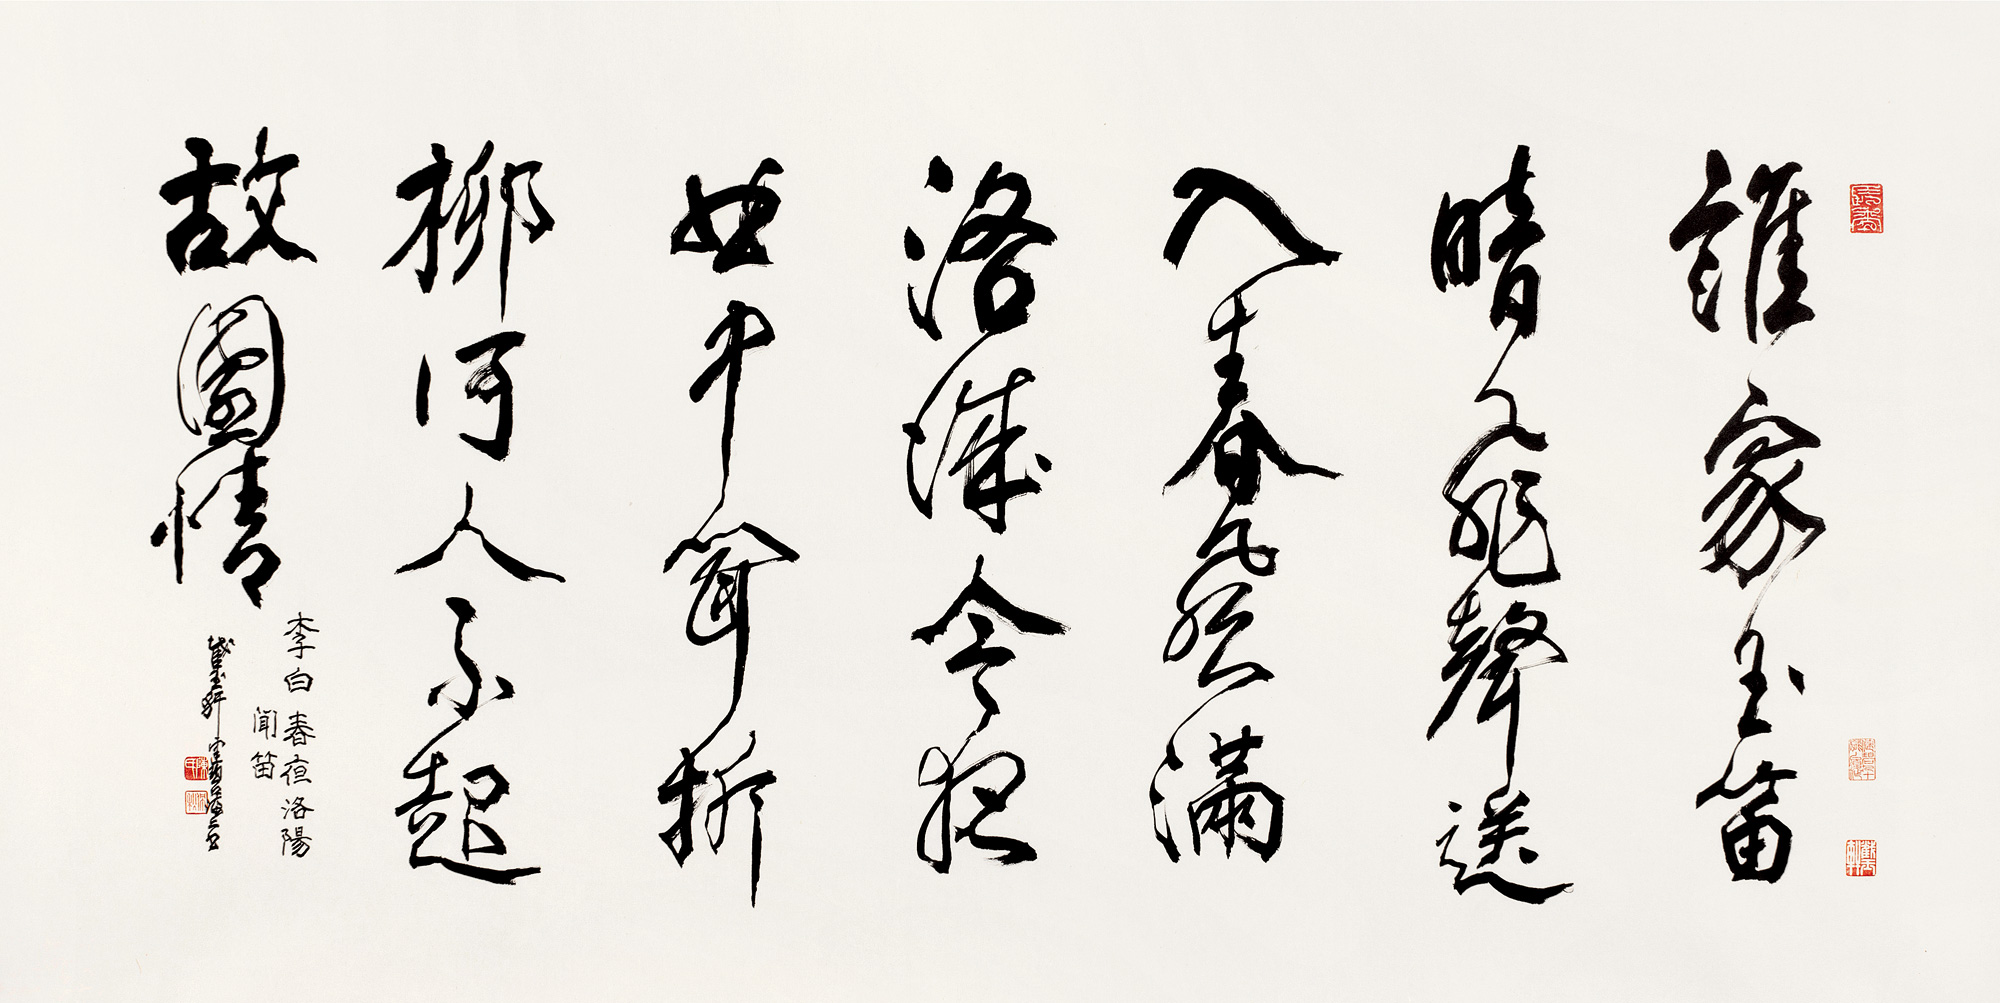 誰家玉笛
暗飛聲送
入春風滿
洛城今夜
曲中聞折
柳何人不起
故園情
李白春夜洛陽
聞笛